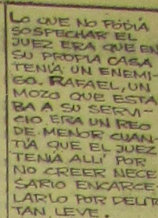 LO QUE NO PODÍA
SOSPECHAR EL
JUEZ ERA QUE EN
SU PROPIA CASA
TENÍA UN ENEMI-
GO. RAFAEL, UN
MOZO QUE ESTA-
BA A SU SERVI-
CIO ERA UN REO
DE MENOR CUAN-
TÍA QUE EL JUEZ
TENÍA ALLÍ POR
NO CREER NECE-
SARIO ENCARCE-
LARLO POR DELITO
TAN LEVE.